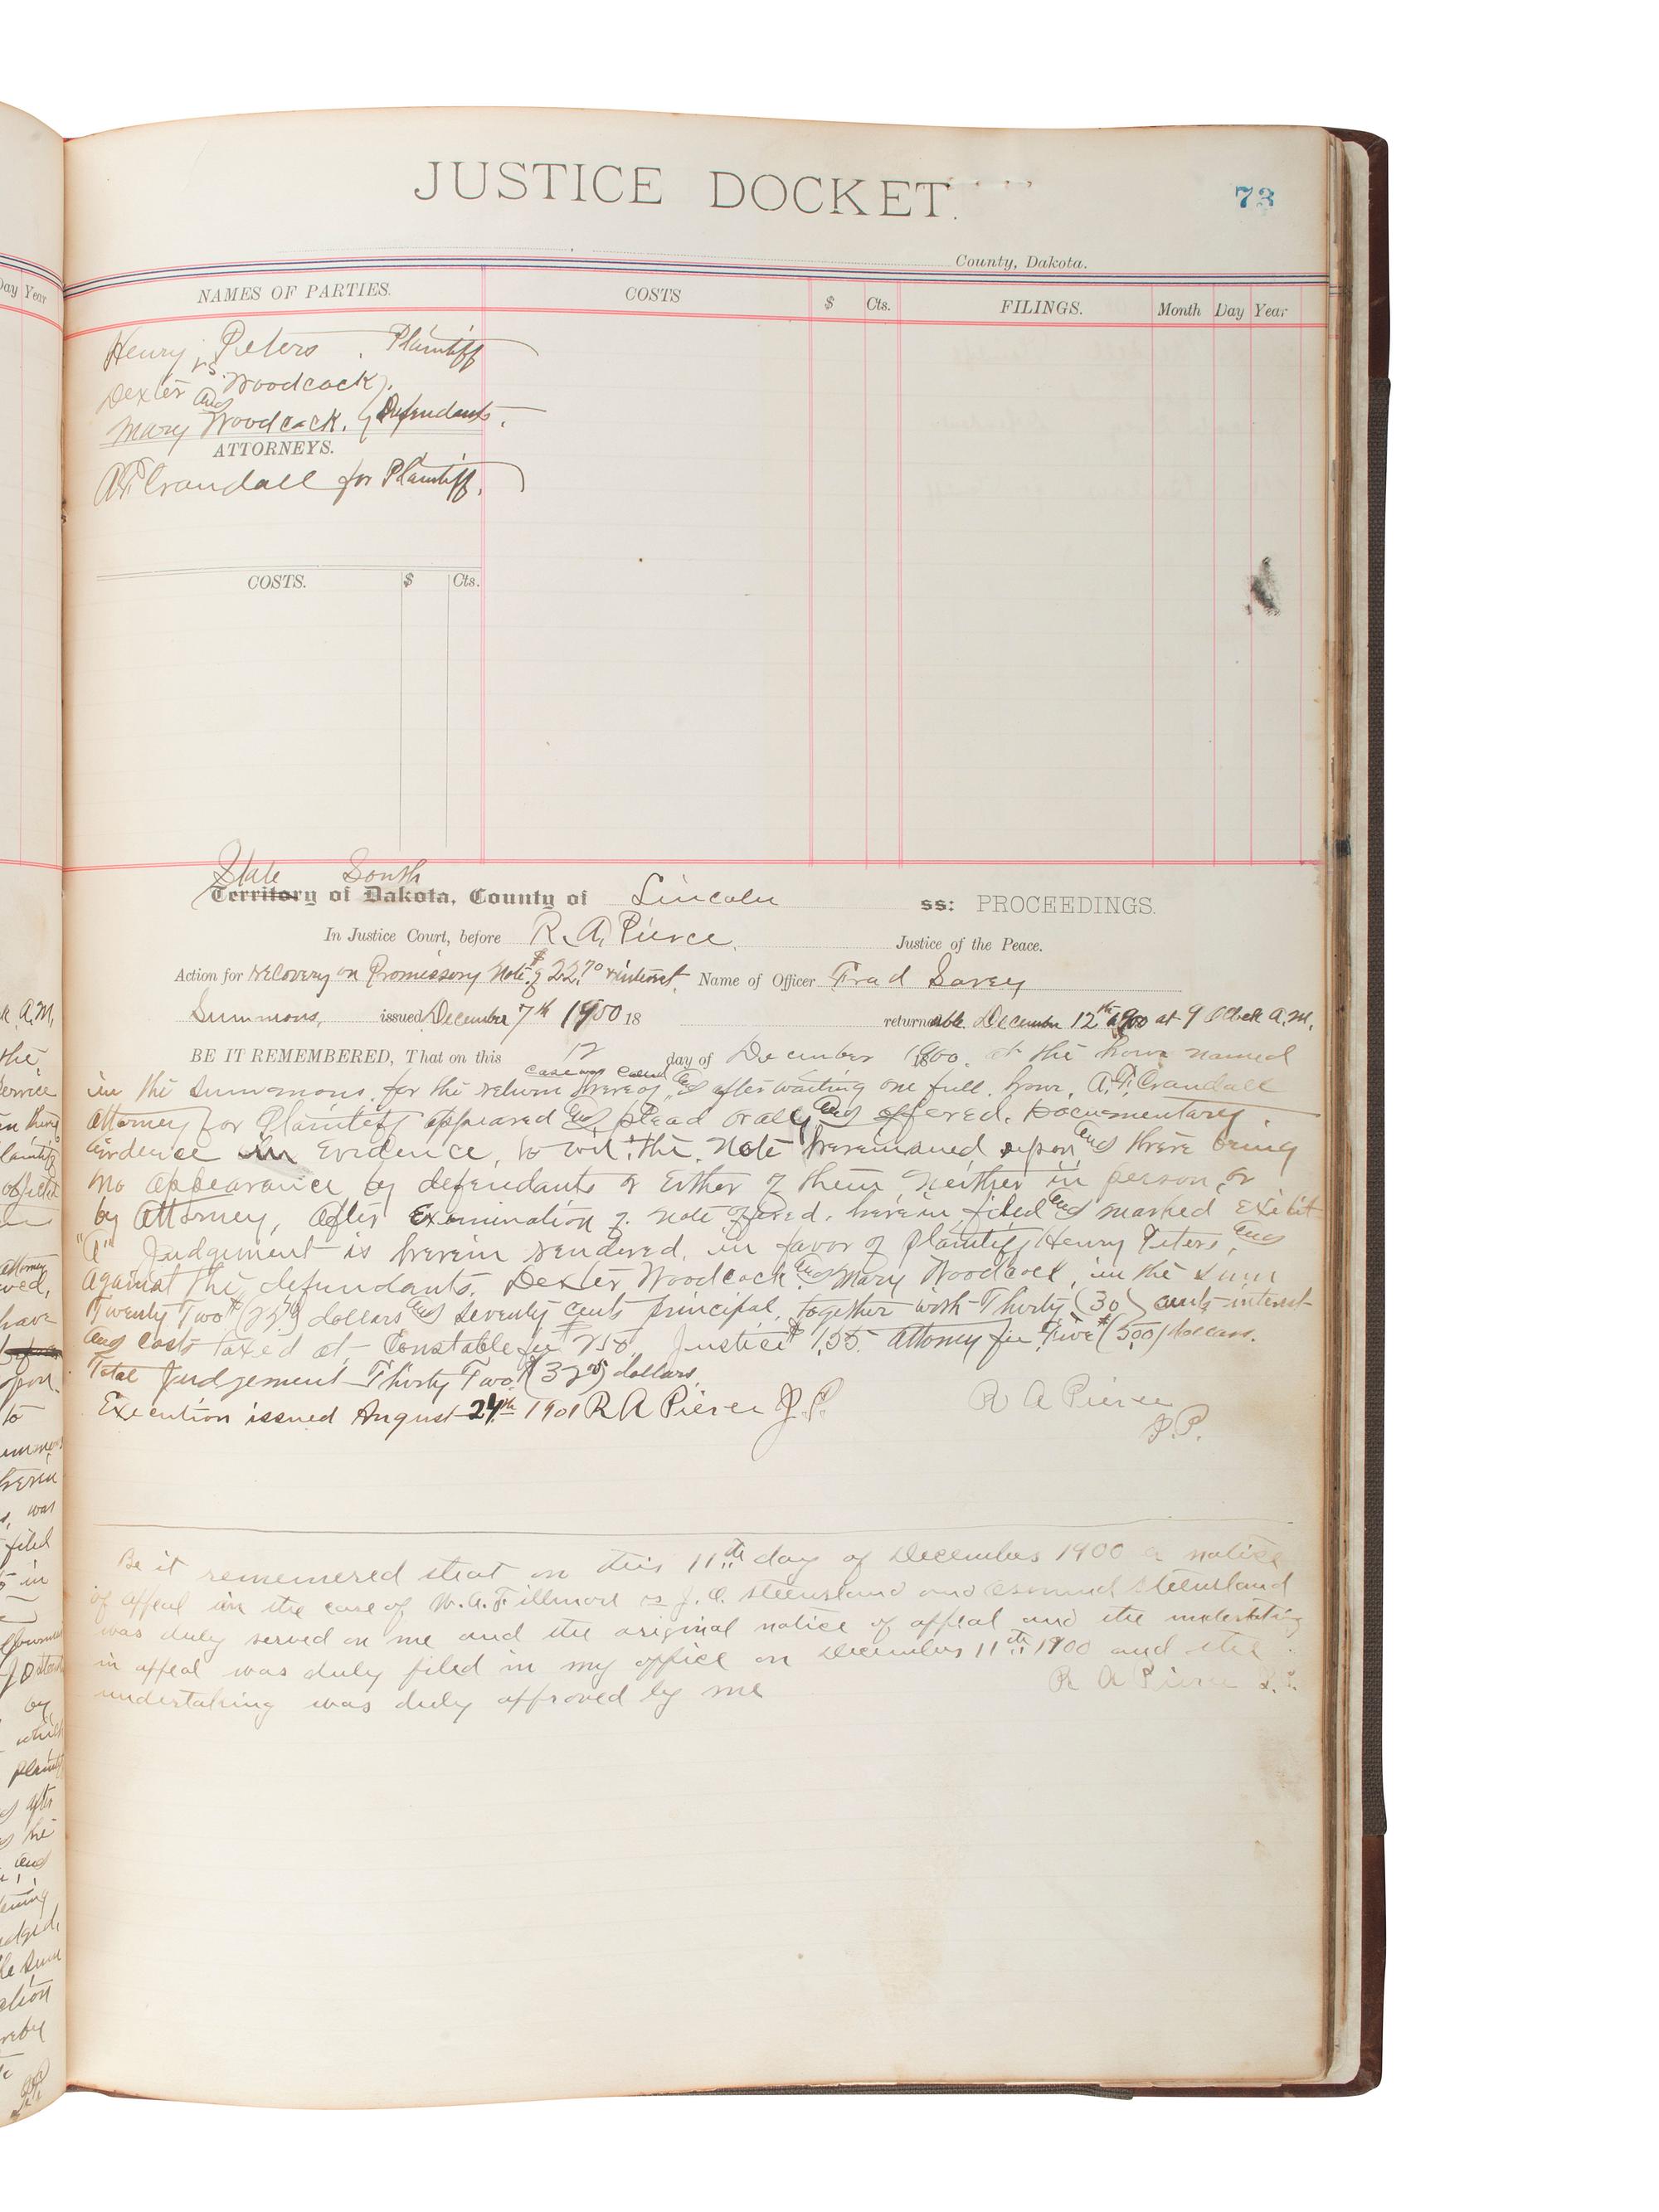 JUSTICE DOCKET.
73
County, Dakota.
Day Year
NAMES OF PARTIES. COSTS $ Cts. FILINGS. Month Day Year
Henry Peters, Plaintiff
vs.
Dexter Woodcock
and
Mary Woodcock. Defendants.
ATTORNEYS.
A.F. Crandall for Plaintiff.
COSTS. $ Cts.
State South
Territory of Dakota, County of Lincoln ss: PROCEEDINGS.
In Justice Court, before R. A. Pierce. Justice of the Peace.
Action for recovery on Promissory Note of $22.70 & interest. Name of Officer Fred
Summons, issued December 7th 1900 18 returnable December 12th 1900 at 9 Oclock A.M.
BE IT REMEMBERED, That on this 12 day of December 1900. at the hour named
case was called
in the Summons for the return hereof, and after waiting one full hour, A.F. Crandall
Attorney for Plaintiff appeared and plead orally and offered Documentary
Evidence in Evidence, to wit: the Note herein sued upon and there being
no appearance by defendants or Either of them, neither in person, or
by Attorney, After Examination of note offered, herein filed and marked Exibit
"A" Judgement is herein rendered in favor of Plaintiff Henry Peters, and
Against the defendants, Dexter Woodcock and Mary Woodcock, in the sum
Twenty Two $(22 70) dollars and seventy cents principal, together with Thirty (30) cents interest
and costs taxed at Constable fee $2 50, Justice $1.55 Attorney fee Five $(5.00) dollars.
Total Judgement Thirty Two $(32 05) dollars.
Execution issued August 24th 1901 R A Pierce J.P.
R A Pierce
J.P.
Be it rememered that on this 11th day of December 1900 a notice
of appeal in the case of W. A. Fillmore vs J. O. Steensland and Steensland
was duly served on me and the original notice of appeal and the undertaking
in appeal was duly filed in my office on December 11th 1900 and the
undertaking was duly approved by me
R A Pierce J.P.